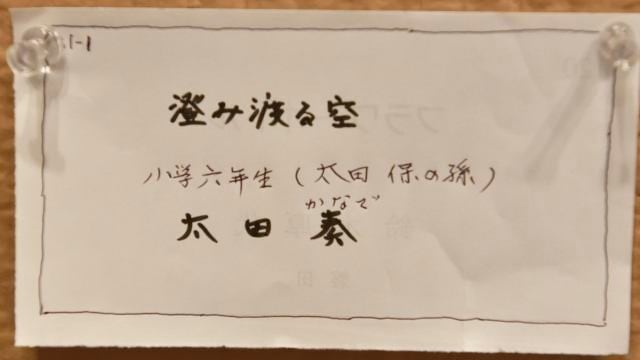 澄み渡る空
小学六年生(太田 保の孫)
かなで
太田 奏